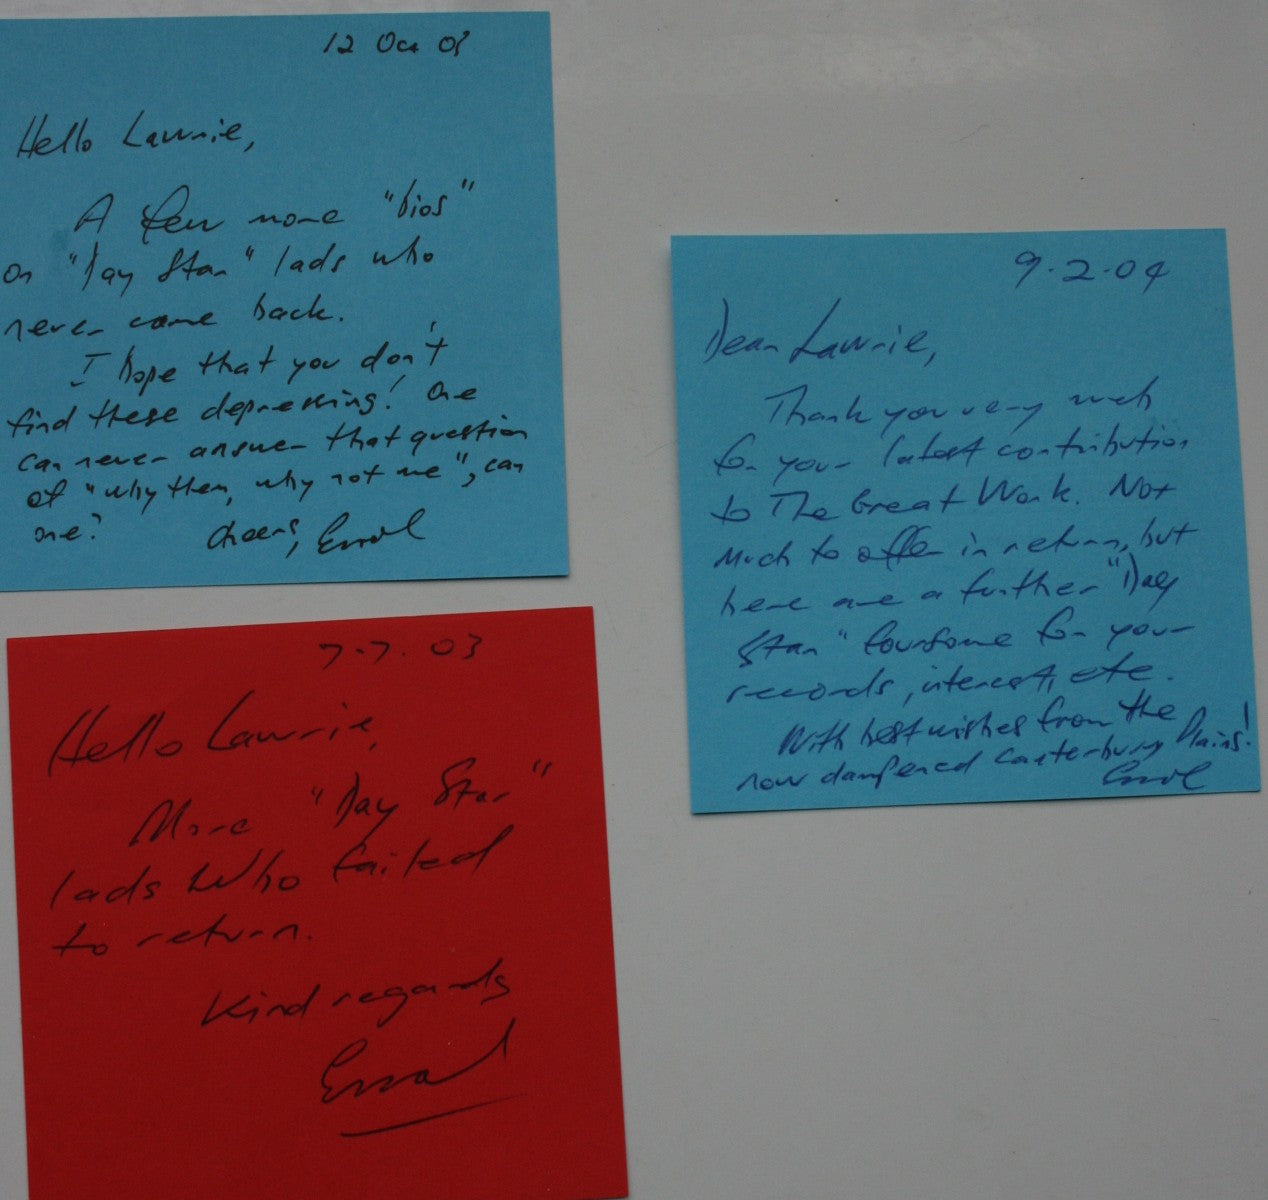 12 Oct 03
Hello Lawrie,
A few more "bios"
on "Day Star" lads who
never came back.
I hope that you don't
find these depressing! One
can never answer that question
of "why them, why not me", can
one?
Cheers, Errol
7.7.03
Hello Lawrie,
More "Day Star"
lads who failed
to return.
Kind regards
Errol
9.2.04
Dear Lawrie,
Thank you very much
for your latest contribution
to The Great Work. Not
much to offer in return, but
here are a further "Day
Star" foursome for your
records, interest, etc.
With best wishes from the
now dampened Canterbury Plains!
Errol